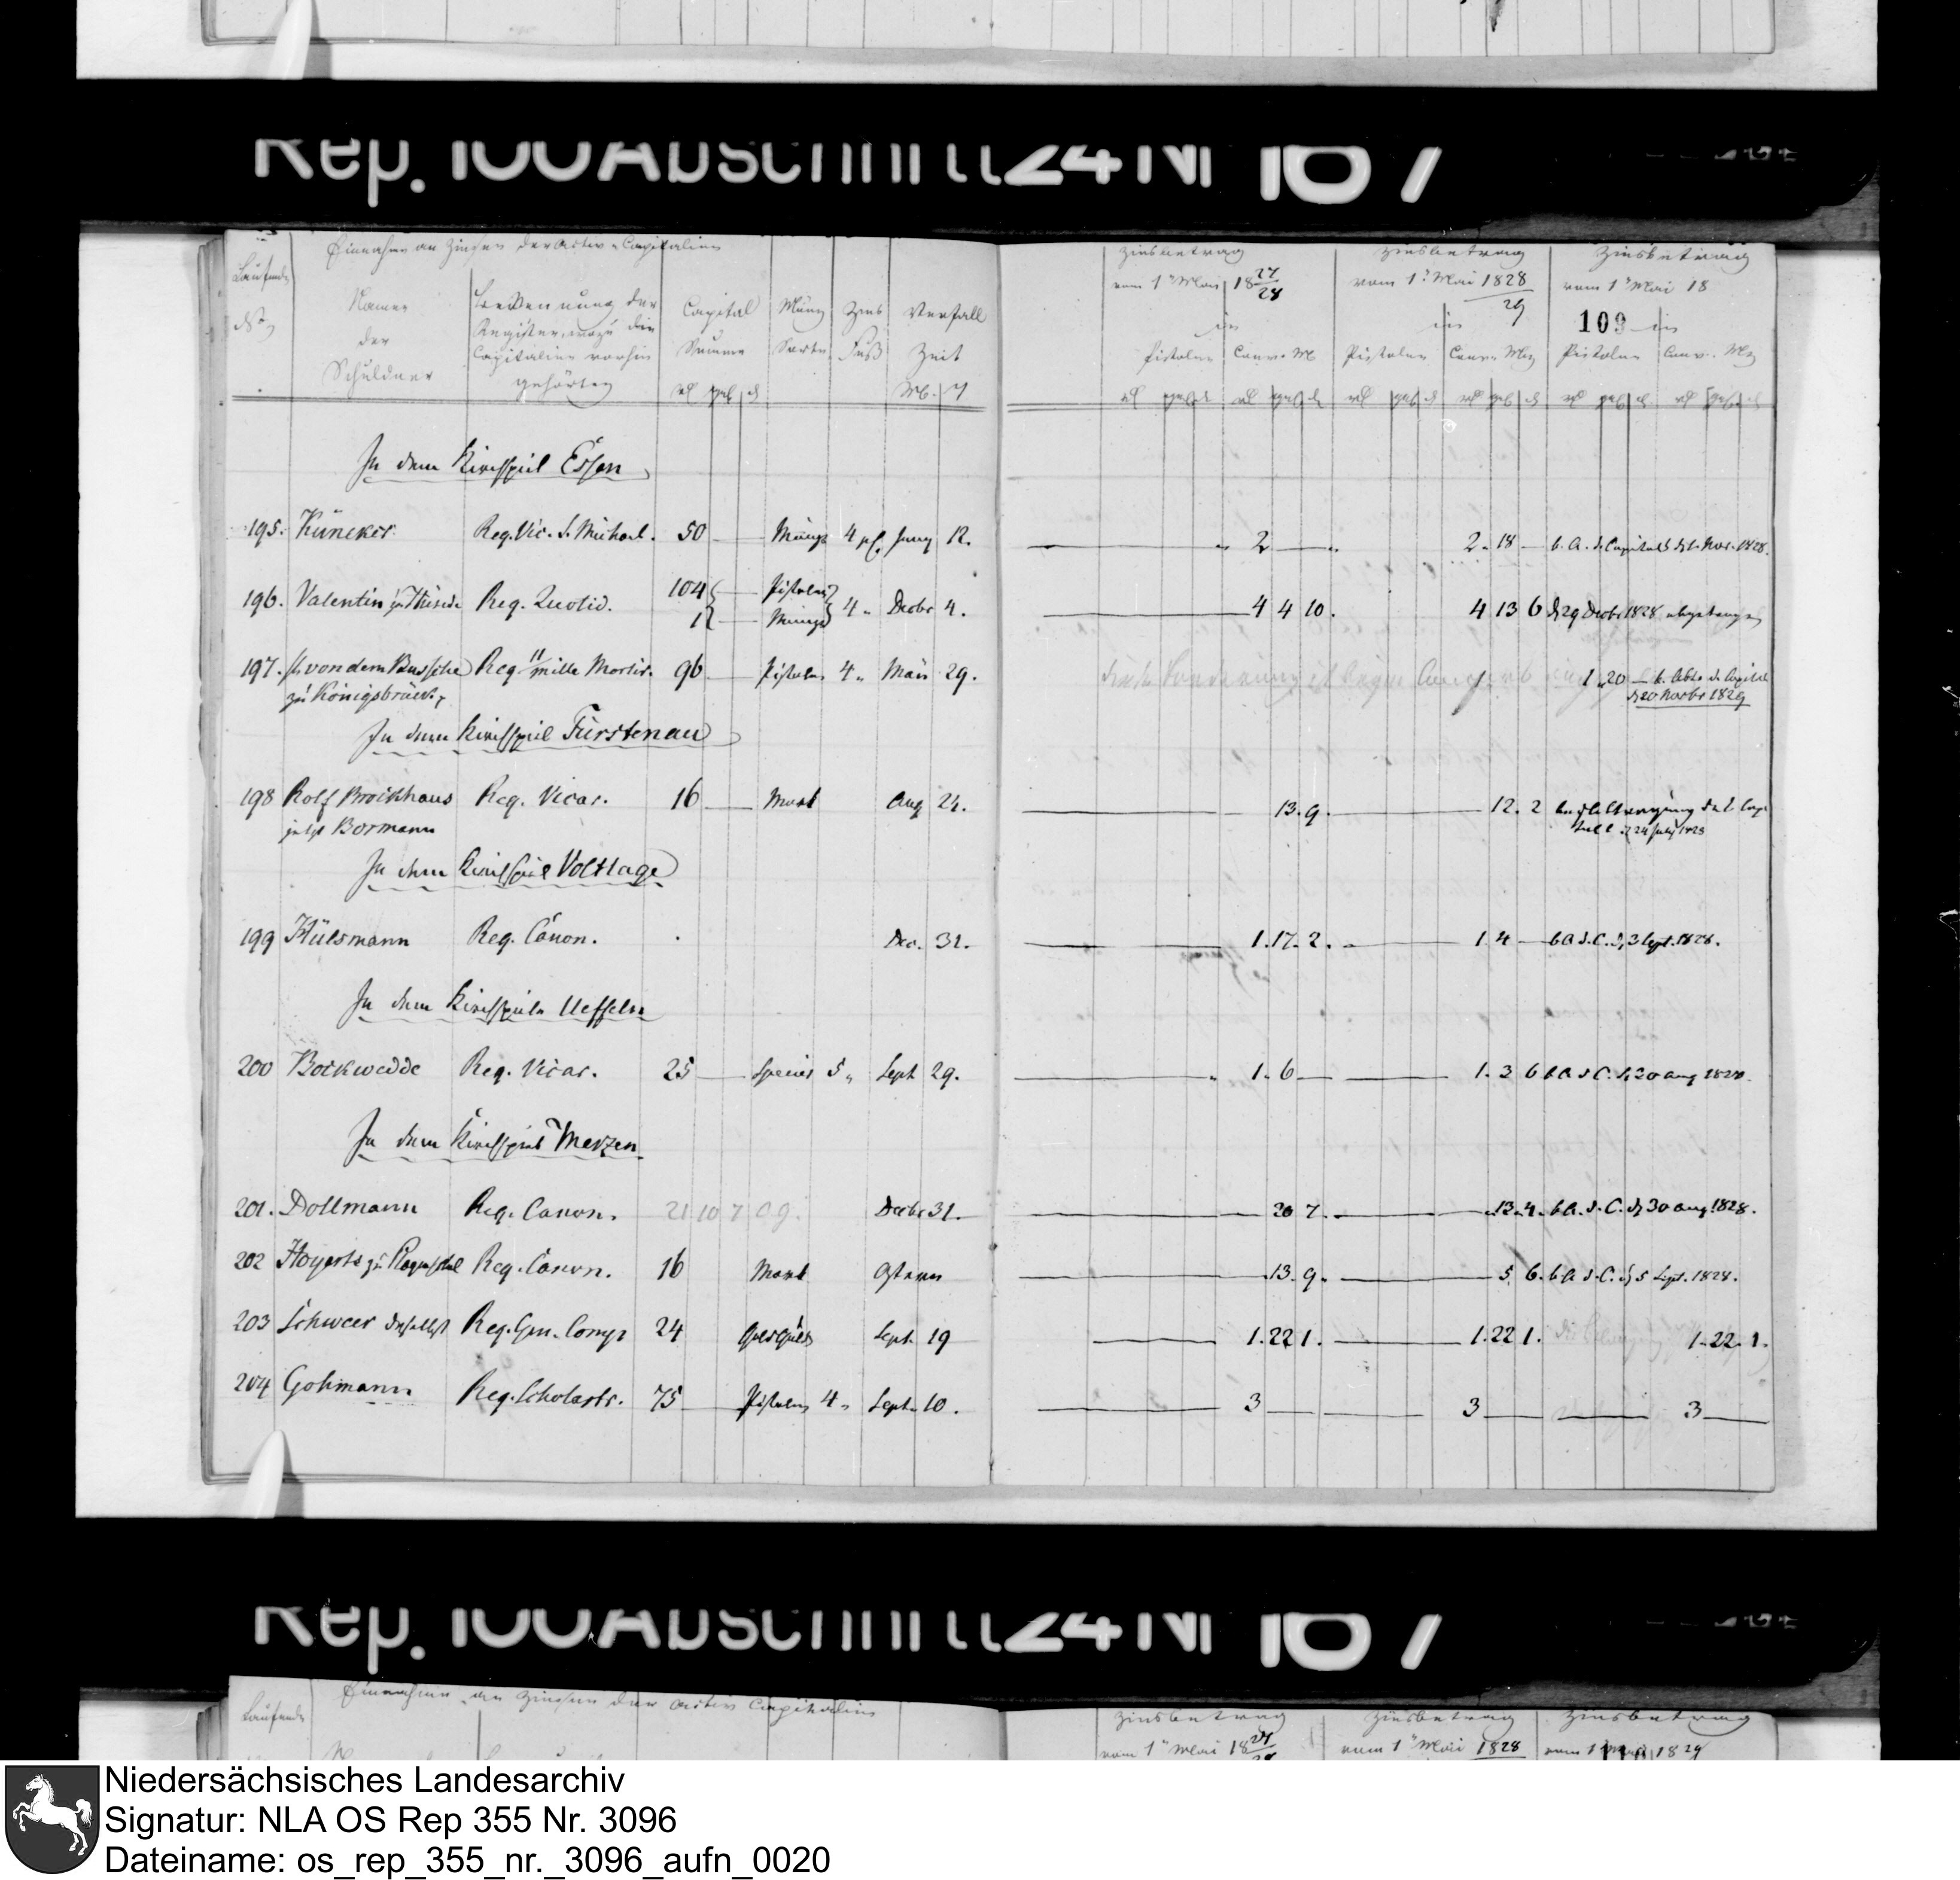 Rep. 100 Abschnitt 24 Nr 107
Einnahme an Zinsen der Activ-Capitalien
Laufende
No
Namen
der
Schuldner
Benennung der
Register, wozu die
Capitalien vorhin
gehörten
Capital
Summe
Münz
Sorte
Zins
Fuß
Verfall
Zeit
Zinsbetrag
vom 1n Mai 1827/28
in
Pistolen
Conv. M
Zinsbetrag
vom 1n Mai 1828/29
in
Pistolen
Conv. Mz
Zinsbetrag
vom 1n Mai 18
109 in
Pistolen
Conv. Mz
In dem Kirchspiel Essen
195. Küneker Reg. Vic. S. Michael. 50 Münze 4 pC. Juny 12. 2 2. 18 b. A. d. Capitals d. 1. Nov. 1828.
196. Valentin zu Reg. Quotid. 104 Pistolen
12 Münze 4 „ Decbr 4. 4 4 10. 4 13 6 d 29 Decbr 1828 abgetragen
197. v von dem Bussche Reg. 11 mille Martir. 96 Pistolen 4 „ März 29. 1 „ 20 b. Abtr. d. Capital
zu Königsbrück, d 20 Novbr 1829
In dem Kirchspiel Fürstenau
198 Rolf Brockhaus Reg. Vicar. 16 Mark Aug 24. 13. 9. 12. 2
jetzt Bormann 24 July 1828
In dem Kirchspiel Voltlage
199 Hülsmann Reg. Canon. Dec. 31. 1. 17. 2. 1. 4 b A d. C. d. 3 Sept. 1828.
In dem Kirchspiele Ueffeln
200 Bockwedde Reg. Vicar. 25 Species 5 „ Sept 29. 1. 6 1. 3 6 b A d C. d. 30 Aug 1828.
In dem Kirchspiel Merzen
201. Dollmann Reg. Canon. 21 10 7 Decbr 31. 20 7. 13. 4. b A. d. C. d. 30 Aug. 1828.
202 Hoyerts zu Reg. Canon. 16 Mark Ostern 13. 9. 5 6. b A d. C. d. 5 Sept. 1828.
203 Schweer daselbst Reg. Gen. Comp 24 Sept. 19 1. 22 1. 1. 22 1. 1. 22. 1.
204 Gohmann Reg. Scholastr. 75 Pistolen 4 „ Sept. 10. 3 3 3
Rep. 100 Abschnitt 24 Nr 107
Laufende
Einnahme an Zinsen der Activ Capitalien
Zinsbetrag
vom 1n Mai 1827
Zinsbetrag
vom 1n Mai 1828
Zinsbetrag
vom 1n Mai 1829
Niedersächsisches Landesarchiv
Signatur: NLA OS Rep 355 Nr. 3096
Dateiname: os_rep_355_nr._3096_aufn_0020